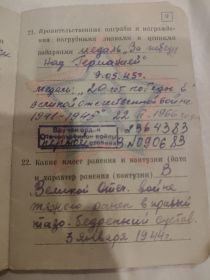 9
21. Правительственные награды и награжде-
ния почетными грамотами и ценными
подарками медаль „За победу
над Германией"
9.05.45г.
медаль „20 лет победы в
Великой отечественной войне
1941-1945" 22.II.1966 года
Вручен орд-н
Отечественной войны
степени
№090683
22. Какие имеет ранения и контузии (дата
и характер ранения и контузии) В
Великой Отеч. войне
тяжело ранен в правый
тазо-бедренный сустав
3 января 1944г.